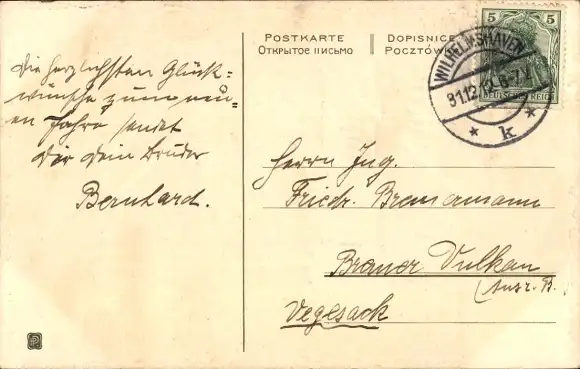 POSTKARTE
ОТКРЫТОЕ ПИСЬМО
DOPISNICE
POCZTÓWK
5 5
DEUTSCHES REICH
WILHELMSHAVEN
31.12. 6-7 V.
* k *
Die herzlichsten Glück-
wünsche zum neu-
en Jahre sendet
Dir Dein Bruder
Bernhard.
Herrn Ing.
Friedr. Bremermann
Bremer Vulkan
Vegesack